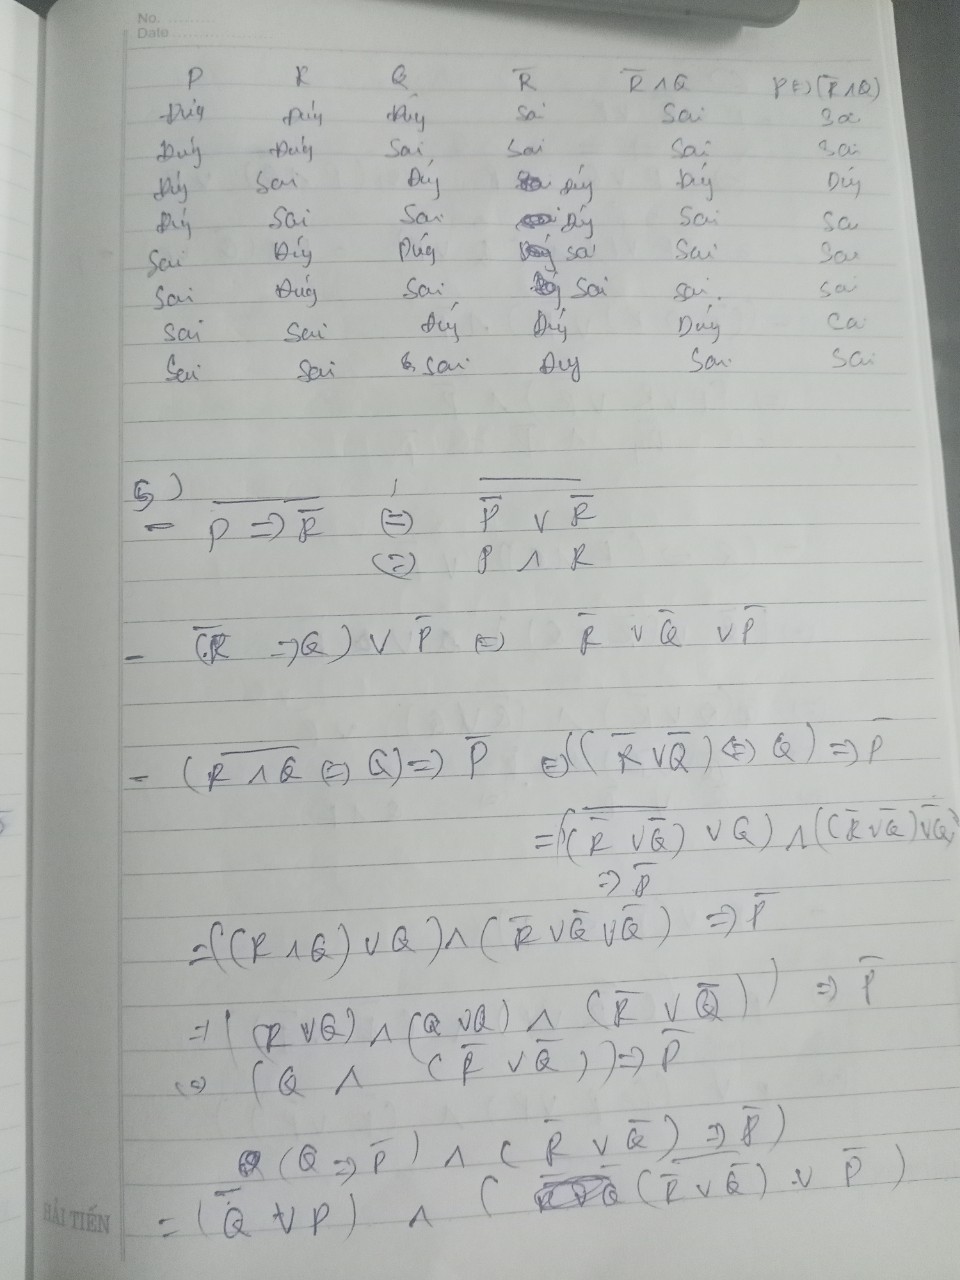 No. ............
Date ............
P R Q R̅ R̅ ∧ Q P ⇔ (R̅ ∧ Q)
Đúng Đúng Đúng Sai Sai Sai
Đúng Đúng Sai Sai Sai Sai
Đúng Sai Đúng Đúng Đúng Đúng
Đúng Sai Sai Đúng Sai Sai
Sai Đúng Đúng Sai Sai Sai
Sai Đúng Sai Sai Sai Sai
Sai Sai Đúng Đúng Đúng
Sai Sai Sai Đúng Sai Sai
5)
- \overline{P ⇒ R̅} ⇔ \overline{P̅ ∨ R̅}
⇔ P ∧ R
- (R̅ ⇒ Q) ∨ P̅ ⇔ R̅ ∨ Q̅ ∨ P̅
- (\overline{R ∧ Q} ⇔ Q) ⇒ P̅ ⇔ ((R̅ ∨ Q̅) ⇔ Q) ⇒ P̅
= ((\overline{R̅ ∨ Q̅}) ∨ Q) ∧ ((R̅ ∨ Q̅) ∨ Q̅)
⇒ P̅
= ((R ∧ Q) ∨ Q) ∧ (R̅ ∨ Q̅ ∨ Q̅) ⇒ P̅
= ((R ∨ Q) ∧ (Q ∨ Q) ∧ (R̅ ∨ Q̅)) ⇒ P̅
⇔ (Q ∧ (R̅ ∨ Q̅)) ⇒ P̅
(Q ⇒ P̅) ∧ (R̅ ∨ Q̅) ⇒ P̅)
= (Q̅ ∨ P) ∧ ((\overline{R̅ ∨ Q̅}) ∨ P̅)
HẢI TIẾN